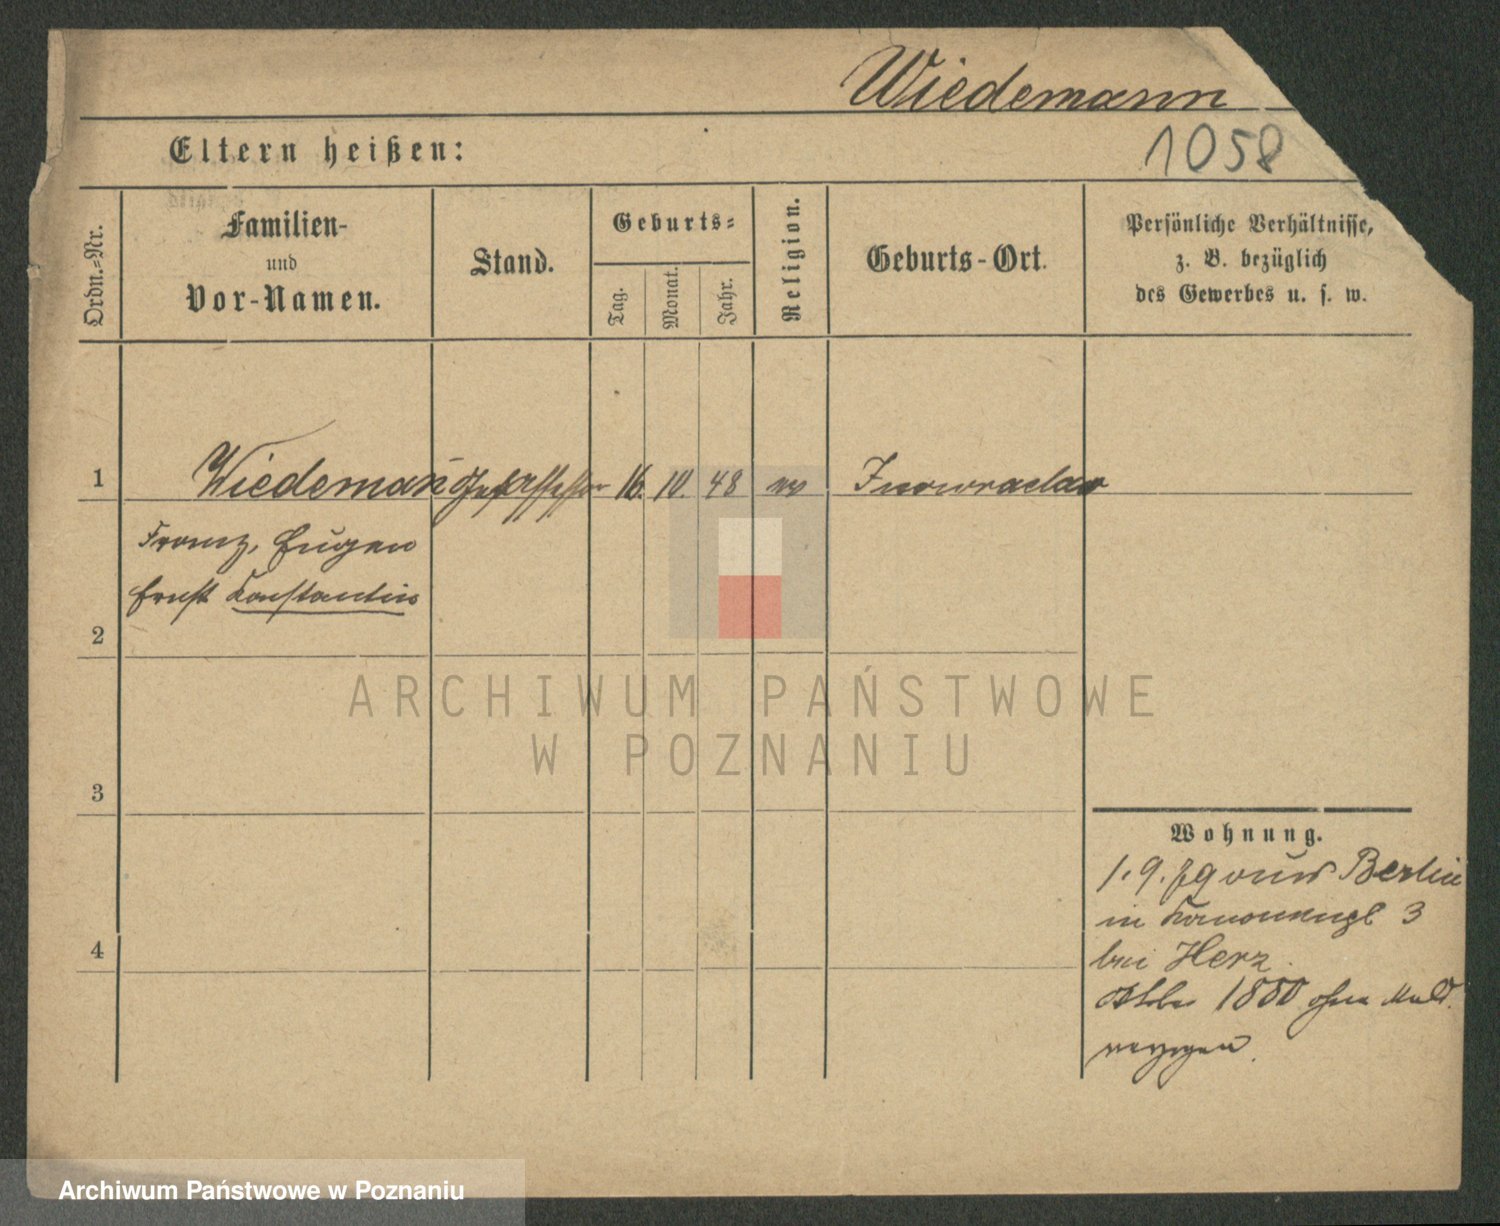 Wiedemann
1058
Eltern heißen:
Ordn.-Nr.
Familien-
und
Vor-Namen.
Stand.
Geburts-
Tag.
Monat.
Jahr.
Religion.
Geburts-Ort.
Persönliche Verhältnisse,
z. B. bezüglich
des Gewerbes u. s. w.
1 Wiedemann 16. 10. 48 ev Inowraclaw
Franz, Eugen
Ernst Konstantin
2
ARCHIWUM PAŃSTWOWE
W POZNANIU
3
Wohnung.
1. 9. 79 aus Berlin
in Kanonenpl 3
bei Herz.
4
Oktbr 1880 ohne Meld.
verzogen.
Archiwum Państwowe w Poznaniu